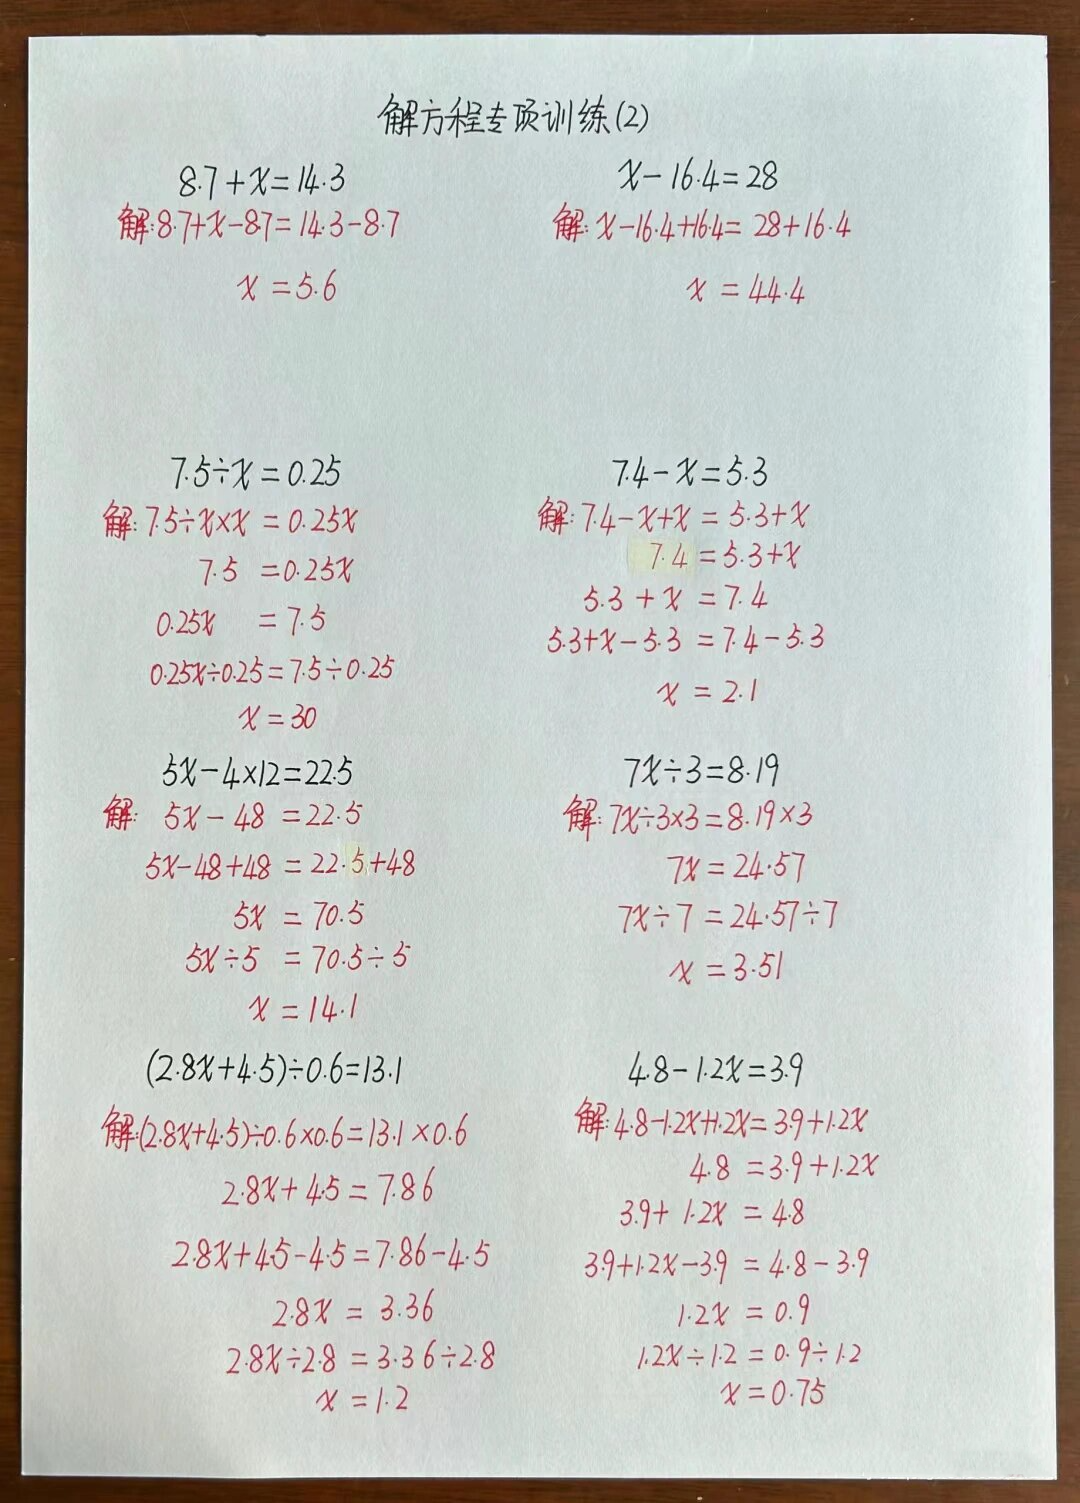 解方程专项训练(2)
8.7+x=14.3
解:8.7+x-8.7=14.3-8.7
x=5.6
x-16.4=28
解:x-16.4+16.4=28+16.4
x=44.4
7.5÷x=0.25
解:7.5÷x×x=0.25x
7.5=0.25x
0.25x=7.5
0.25x÷0.25=7.5÷0.25
x=30
7.4-x=5.3
解:7.4-x+x=5.3+x
7.4=5.3+x
5.3+x=7.4
5.3+x-5.3=7.4-5.3
x=2.1
5x-4×12=22.5
解: 5x-48=22.5
5x-48+48=22.5+48
5x=70.5
5x÷5=70.5÷5
x=14.1
7x÷3=8.19
解:7x÷3×3=8.19×3
7x=24.57
7x÷7=24.57÷7
x=3.51
(2.8x+4.5)÷0.6=13.1
解:(2.8x+4.5)÷0.6×0.6=13.1×0.6
2.8x+4.5=7.86
2.8x+4.5-4.5=7.86-4.5
2.8x=3.36
2.8x÷2.8=3.36÷2.8
x=1.2
4.8-1.2x=3.9
解:4.8-1.2x+1.2x=3.9+1.2x
4.8=3.9+1.2x
3.9+1.2x=4.8
3.9+1.2x-3.9=4.8-3.9
1.2x=0.9
1.2x÷1.2=0.9÷1.2
x=0.75